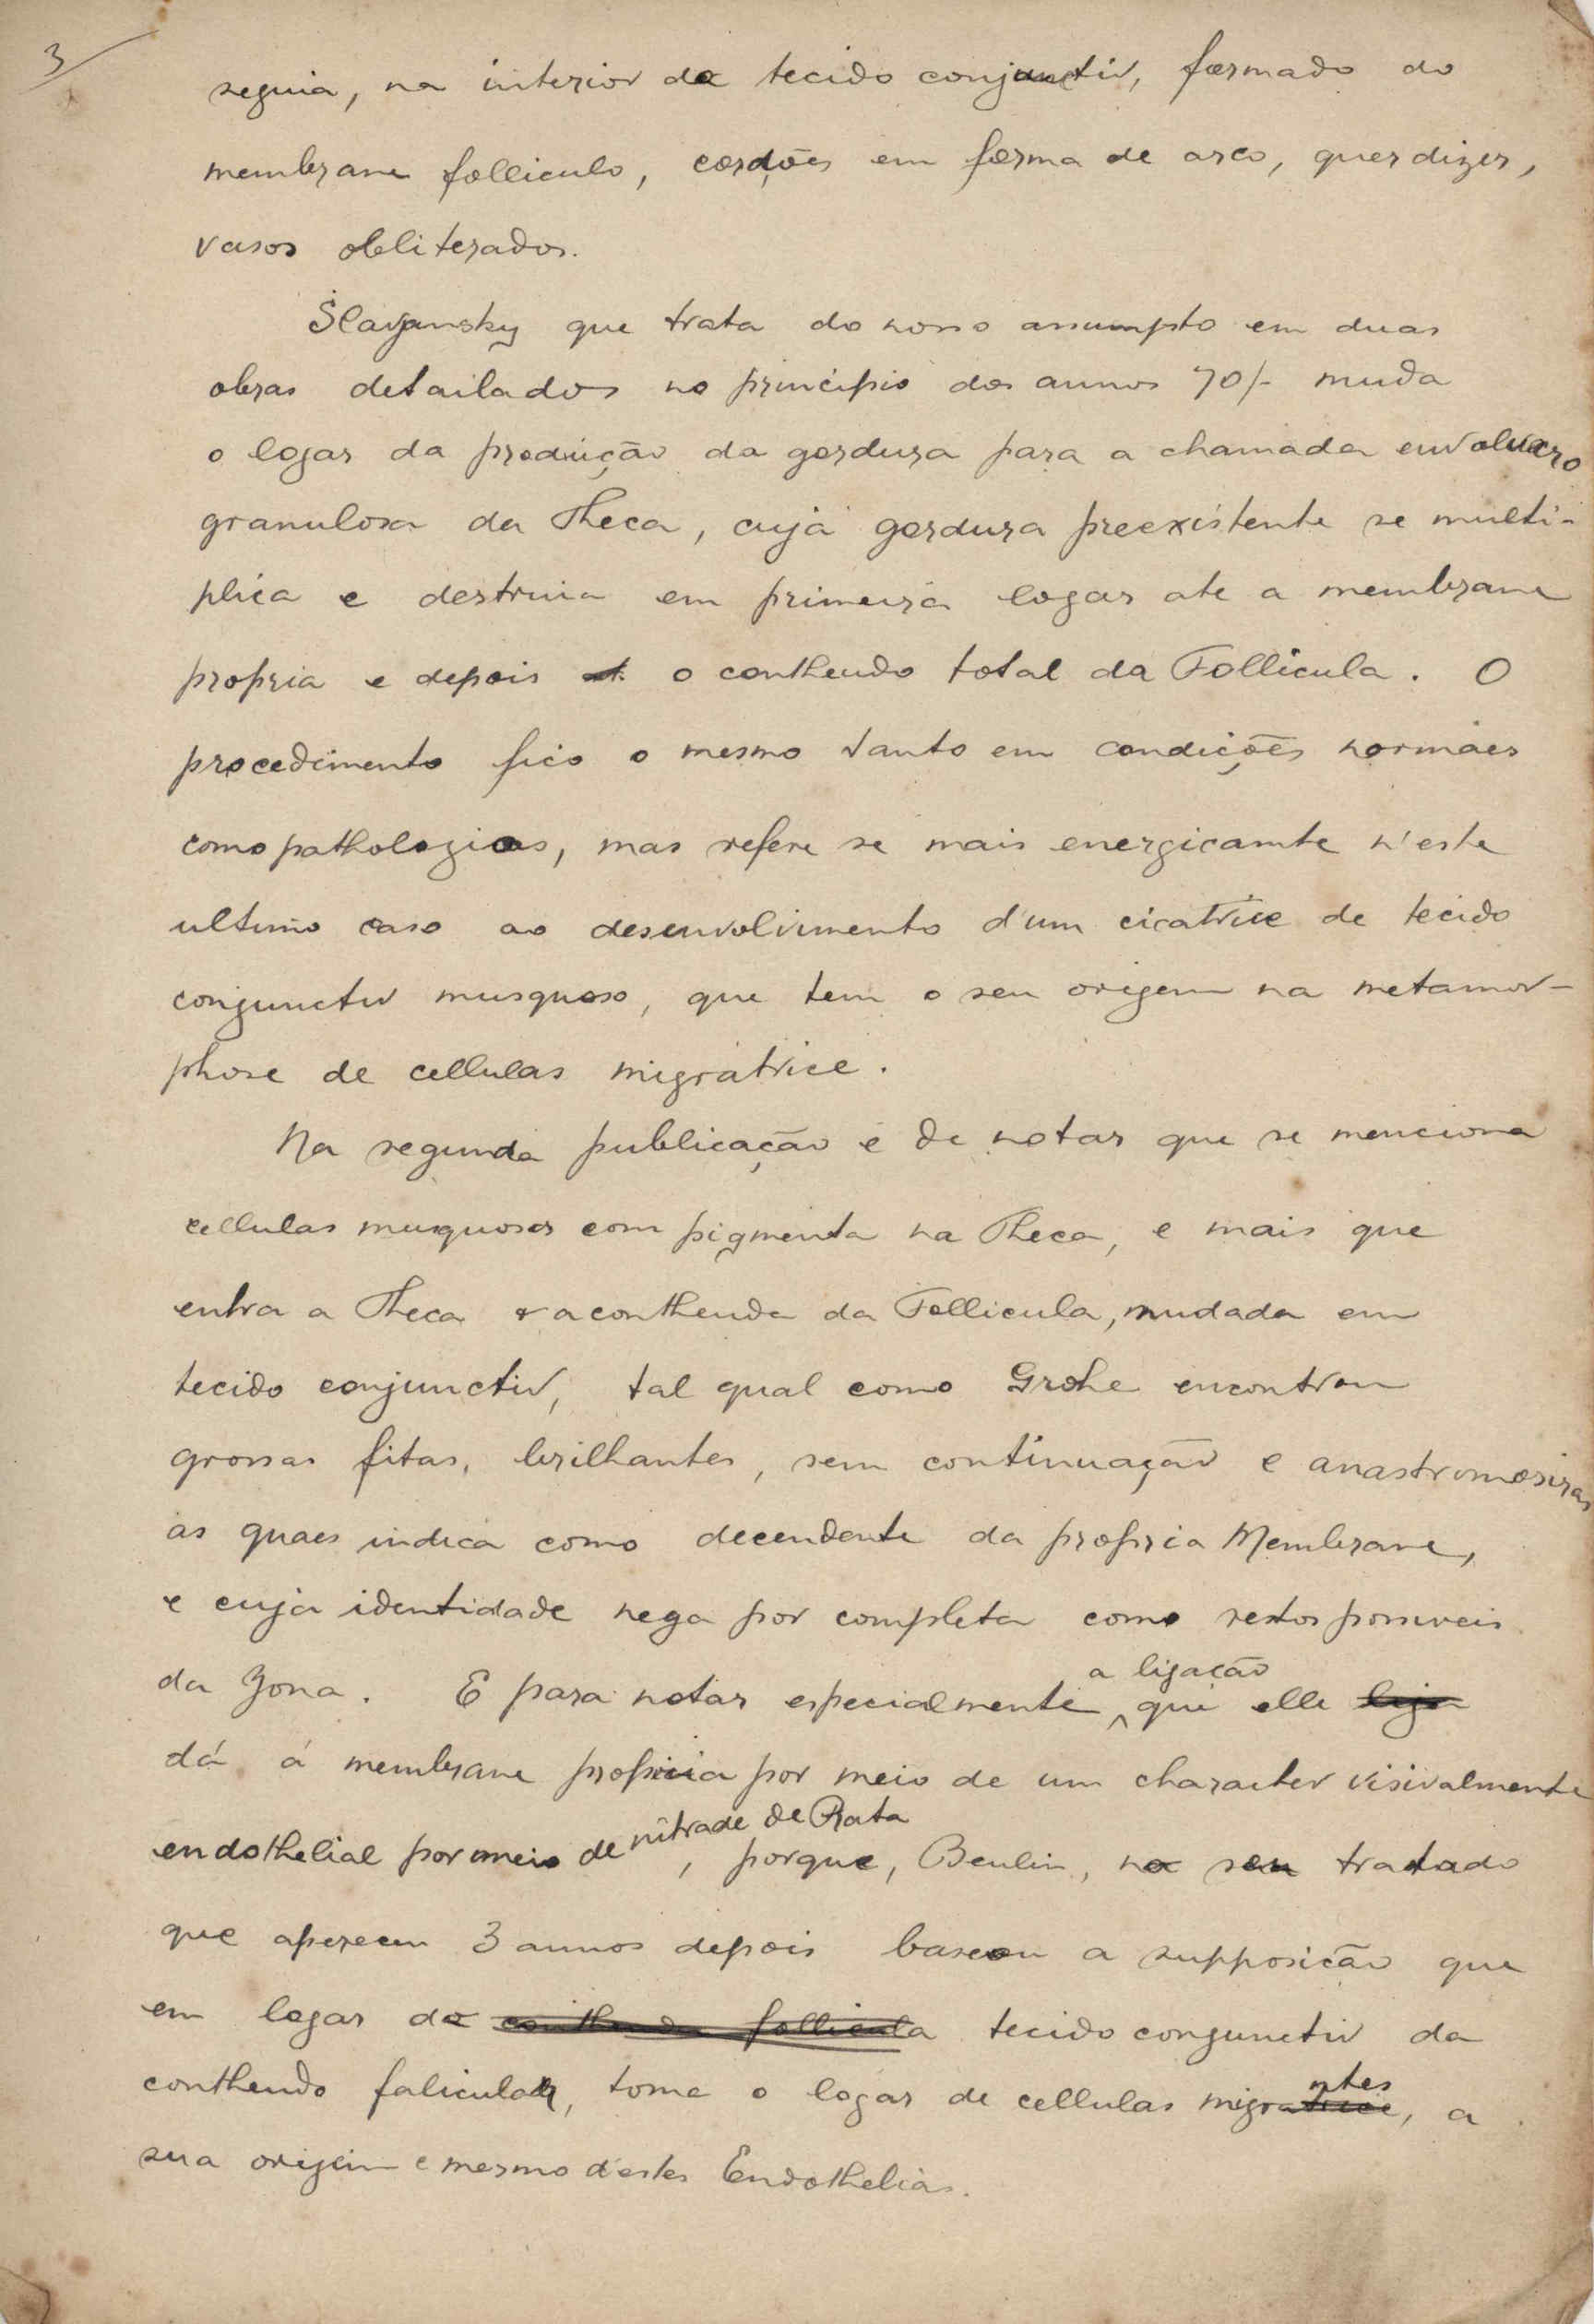 3
seguia, na interior da tecido conjunctiv, formado do
membrane folliculo, cordões em forma de arco, quer dizer,
vasos obliterados.
Slavjansky que trata do nosso assumpto em duas
obras detailados no principio dos annos 70/- muda
o logar da producção da gordura para a chamada envolucro
granulosa da Theca, cuja gordura preexistente se multi-
plica e destruia em primeira logar ate a membrane
propria e depois o contheudo total da Follicula. O
procedimento fico o mesmo tanto em condições normaes
como pathologicas, mas refere se mais energicamte n'este
ultimo caso ao desenvolvimento d'um cicatrice de tecido
conjunctiv musquoso, que tem o seu origem na metamor-
phose de cellulas migratrice.
Na segunda publicação é de notar que se menciona
cellulas musquosas com pigmenta na Theca, e mais que
entra a Theca e a contheuda da Follicula, mudada em
tecido conjunctiv, tal qual como Grohe encontrou
grossas fitas, brilhantes, sem continuação e anastromosiras
as quaes indica como decendente da propria Membrane,
e cuja identidade nega por completa como restos possiveis
da Zona. E para notar especialmente a ligação que elle
dá á membrane propria por meio de um character visivalmente
endothelial por meio de nitrade de Prata, porque, Beulin, no seu tratado
que aperecen 3 annos depois baseou a supposição que
em logar do tecido conjunctiv da
contheudo falicular, tome o logar de cellulas migrantes, a
sua origem e mesmo d'estes Endothelias.